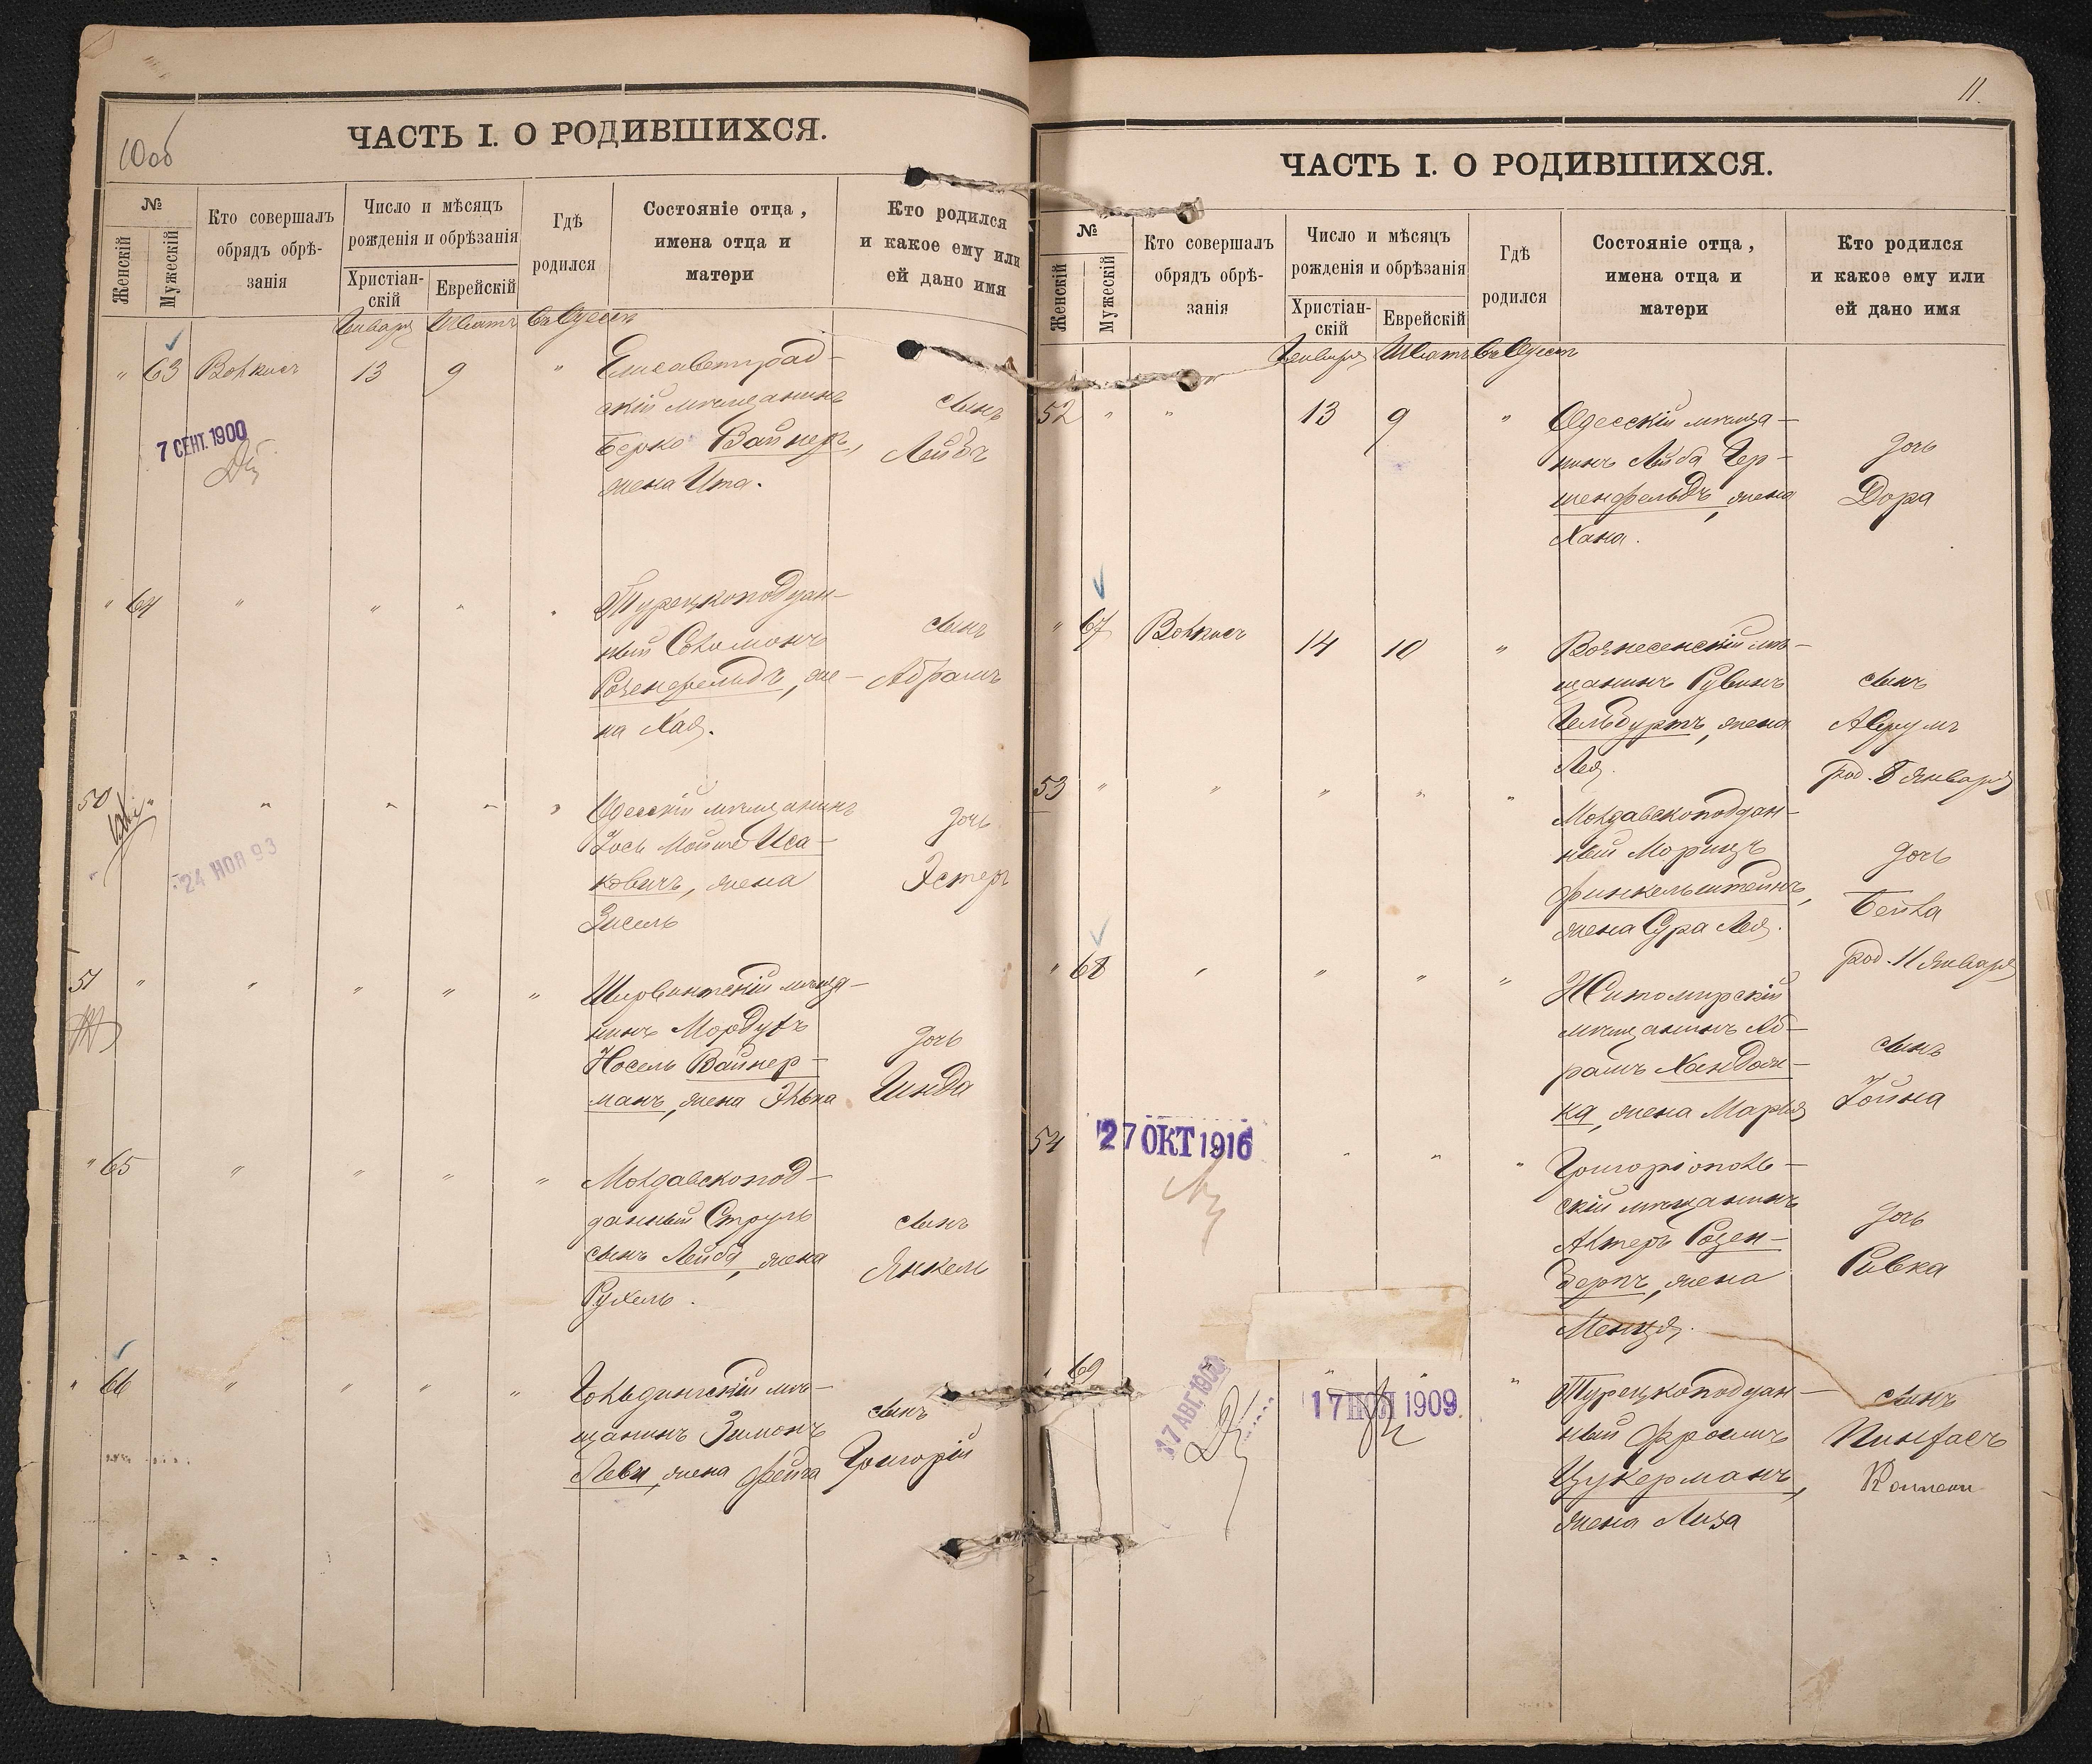 10об
ЧАСТЬ I. О РОДИВШИХСЯ.
№
Женскій
Мужескій
Кто совершалъ
обрядъ обрѣ-
занія
Число и мѣсяцъ
рожденія и обрѣзанія
Христіан-
скій
Еврейскій
Гдѣ
родился
Состояніе отца,
имена отца и
матери
Кто родился
и какое ему или
ей дано имя
Января Шватъ Въ Одессѣ
" 63 Волкисъ 13 9 "
Елисаветград-
скій мѣщанинъ
Берко Вайнеръ,
жена Ита.
сынъ
Лейбъ
7 СЕНТ. 1900
" 64 " " " "
Турецкоподдан-
ный Соломонъ
Розенфельдъ, же-
на Хая.
сынъ
Абрамъ
50 " " " "
Одесскій мѣщанинъ
Іось Мойше Иса-
ковичъ, жена
Зисель
дочь
Эстеръ
24 НОЯ 93
51 " " " " "
Ширвинтскій мѣща-
нинъ Мордухъ
Носель Вайнер-
манъ, жена Элька
дочь
Гинда
" 65 " " " "
Молдавскопод-
данный Струль
сынъ Лейба, жена
Рухель.
сынъ
Янкель
" 66 " " " "
Гольдингскій мѣ-
щанинъ Зимонъ
Леви, жена Фейга
сынъ
Григорій
11.
ЧАСТЬ I. О РОДИВШИХСЯ.
№
Женскій
Мужескій
Кто совершалъ
обрядъ обрѣ-
занія
Число и мѣсяцъ
рожденія и обрѣзанія
Христіан-
скій
Еврейскій
Гдѣ
родился
Состояніе отца,
имена отца и
матери
Кто родился
и какое ему или
ей дано имя
Января Шватъ Въ Одессѣ
52 " " 13 9 "
Одесскій мѣща-
нинъ Лейба Гер-
шенфельдъ, жена
Хана.
дочь
Дора
" 67 Волкисъ 14 10 "
Вознесенскій мѣ-
щанинъ Рувинъ
Гельбуртъ, жена
Лея.
сынъ
Аврумъ
род. 8 Января
53 " " " " "
Молдавскоподдан-
ный Морицъ
Финкельштейнъ,
жена Сура Лея.
дочь
Бейла
род. 11 Января
" 68 " " " "
Житомирскій
мѣщанинъ Аб-
рамъ Хандож-
ка, жена Марья
сынъ
Іойна
54 " " "
27 ОКТ 1916
Григоріополь-
скій мѣщанинъ
Алтеръ Розен-
берг, жена
Менця.
дочь
Ривка
" 69 " " "
17 АВГ. 1900
17 НОЯ 1909
Турецкоподдан-
ный Фроимъ
Цукерманъ,
жена Лиза
сынъ
Пинхасъ